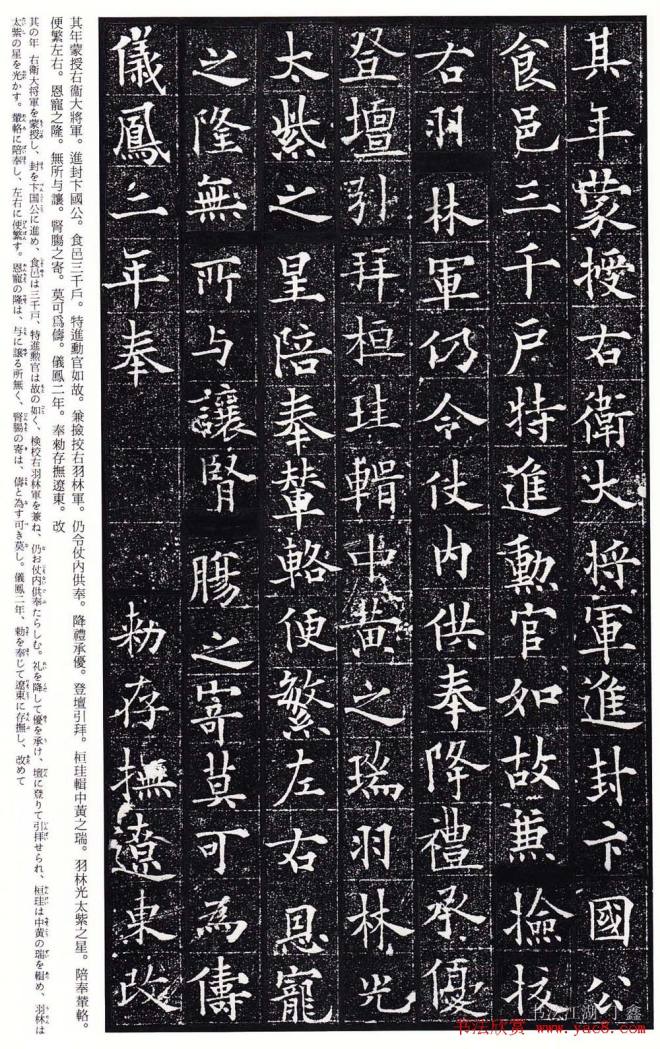 其年蒙授右衛大将軍進封卞國公
食邑三千戶特進勳官如故兼撿挍
右羽林軍仍令仗内供奉降禮承優
登壇引拜桓珪輯中黃之瑞羽林光
太紫之星陪奉輦輅便繁左右恩寵
之隆無所与讓腎腸之寄莫可為儔
儀鳳二年奉 勑存撫遼東改
其年蒙授右衞大將軍。進封卞國公。食邑三千戶。特進勳官如故。兼撿挍右羽林軍。仍令仗内供奉。降禮承優。登壇引拜。桓珪輯中黃之瑞。羽林光太紫之星。陪奉輦輅。
便繁左右。恩寵之隆。無所与讓。腎腸之寄。莫可爲儔。儀鳳二年。奉勑存撫遼東。改
其の年 右衛大将軍を蒙授し、封を卞国公に進め、食邑は三千戸、特進勲官は故の如く、検校右羽林軍を兼ね、仍お仗内供奉たらしむ。礼を降して優を承け、壇に登りて引拝せられ、桓珪は中黄の瑞を輯め、羽林は
太紫の星を光かす。輦輅に陪奉し、左右に便繁す。恩寵の隆は、与に譲る所無く、腎腸の寄は、儔と為す可き莫し。儀鳳二年、勅を奉じて遼東に存撫し、改めて
书法江湖 小鑫
书法欣赏 www.yac8.com